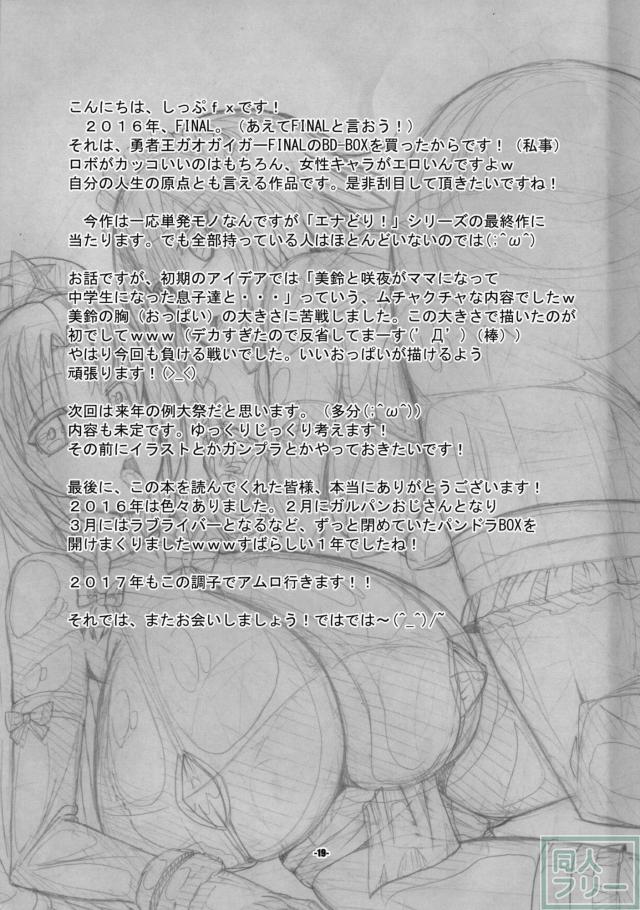 こんにちは、しっぷｆｘです！
２０１６年、FINAL。（あえてFINALと言おう！）
それは、勇者王ガオガイガーFINALのBD-BOXを買ったからです！（私事）
ロボがカッコいいのはもちろん、女性キャラがエロいんですよｗ
自分の人生の原点とも言える作品です。是非刮目して頂きたいですね！
今作は一応単発モノなんですが「エナどり！」シリーズの最終作に
当たります。でも全部持っている人はほとんどいないのでは(;^ω^)
お話ですが、初期のアイデアでは「美鈴と咲夜がママになって
中学生になった息子達と・・・」っていう、ムチャクチャな内容でしたｗ
美鈴の胸（おっぱい）の大きさに苦戦しました。この大きさで描いたのが
初でしてｗｗｗ（デカすぎたので反省してまーす(’Д’)（棒））
やはり今回も負ける戦いでした。いいおっぱいが描けるよう
頑張ります！(>_<)
次回は来年の例大祭だと思います。（多分(;^ω^)）
内容も未定です。ゆっくりじっくり考えます！
その前にイラストとかガンプラとかやっておきたいです！
最後に、この本を読んでくれた皆様、本当にありがとうございます！
２０１６年は色々ありました。２月にガルパンおじさんとなり
３月にはラブライバーとなるなど、ずっと閉めていたパンドラBOXを
開けまくりましたｗｗｗすばらしい１年でしたね！
２０１７年もこの調子でアムロ行きます！！
それでは、またお会いしましょう！ではでは～(^_^)/~
-19-
同人
フリー